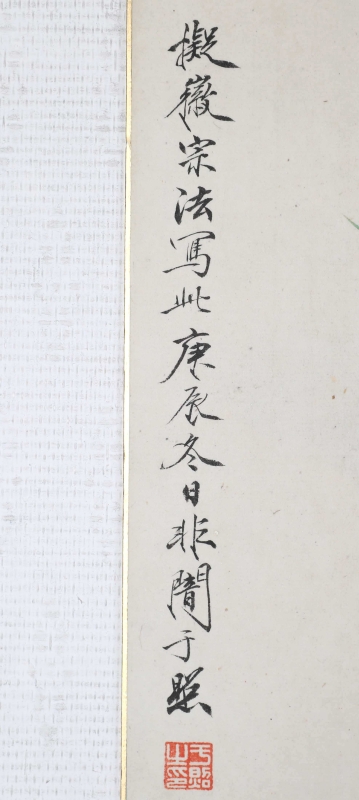 擬徽宗法写此庚辰冬日非闇于照
于照之印